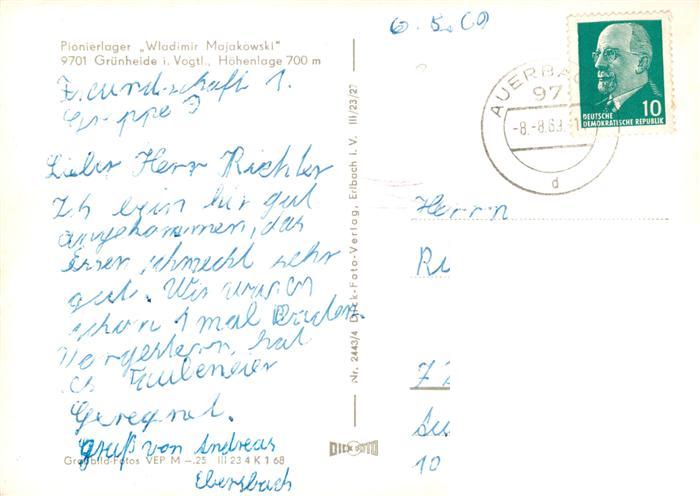 Pionierlager „Wladimir Majakowski"
9701 Grünheide i. Vogtl., Höhenlage 700 m
Freundschaft 1.
Gruppe 3
Liebr Herr Richter
Ich bin hir gut
angekommen, das
Essen schmeckt sehr
gut. Wir waren
schon 1 mal Baden.
Vorgestern, hat
es
Geregnet.
Gruß von Andreas
Ebersbach
Großbild-Fotos VEP M –.25 III 23 4 K 1 68
Nr. 2443/4 Dick-Foto-Verlag, Erlbach i. V. III/23/27
DICK FOTO
AUERBAC
97
-8.-8.69.
d
10
DEUTSCHE
DEMOKRATISCHE REPUBLIK
Herrn
Ri
10